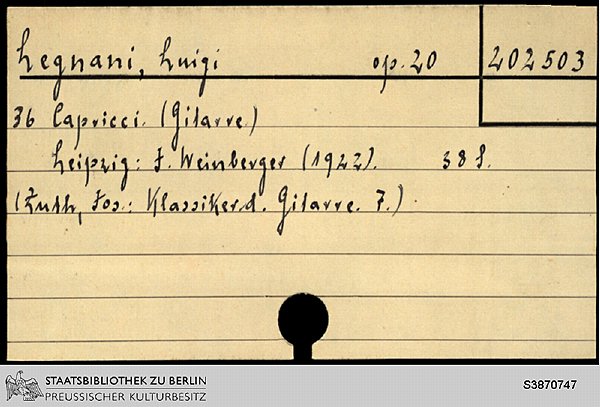 Legnani, Luigi op. 20 202503
36 Capricci. (Gitarre.)
Leipzig: J. Weinberger (1922). 38 S.
(Zuth, Jos.: Klassiker d. Gitarre. 7.)
STAATSBIBLIOTHEK ZU BERLIN
PREUSSISCHER KULTURBESITZ
S3870747